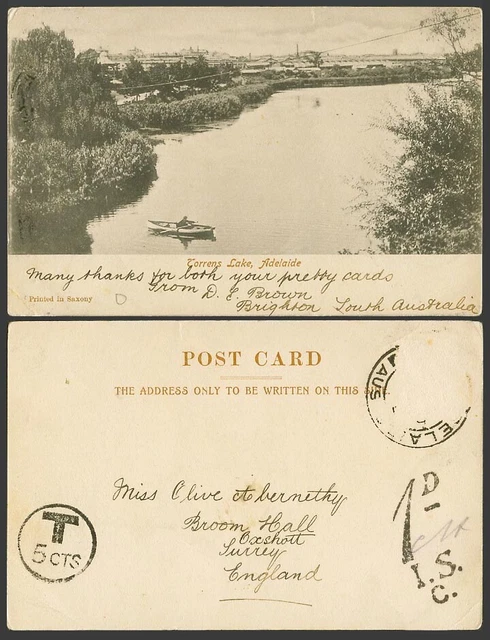 Torrens Lake, Adelaide
Many thanks for both your pretty cards
From D. E. Brown
Brighton South Australia
Printed in Saxony
POST CARD
THE ADDRESS ONLY TO BE WRITTEN ON THIS
AUS
ELA
Miss Olive Abernethy
Broom Hall
Oxshott
Surrey
England
T
5 CTS
1D
I.S.
C.